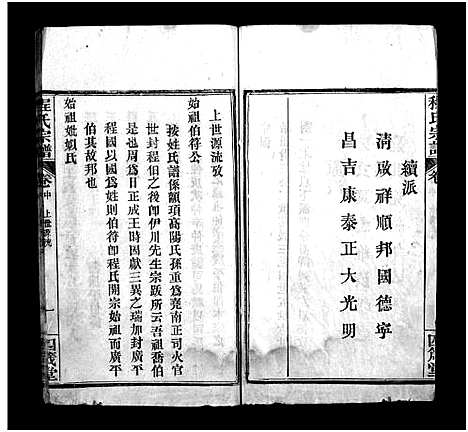 程氏宗譜
卷
四箴堂
續派
清啟祥順邦國德寧
昌吉康泰正大光明
上世源流攷
始祖伯符公
按姓氏譜係顓頊高陽氏孫重為堯南正司火官
世封程伯之後卽伊川先生宗跋所云吾祖喬伯
是也周為日正成王時因獻三異之瑞加封廣平
程國以國為姓則伯符卽程氏開宗始祖而廣平
伯其故邦也
始祖妣姒氏
程氏宗譜
卷中
上世源流
一
四箴堂